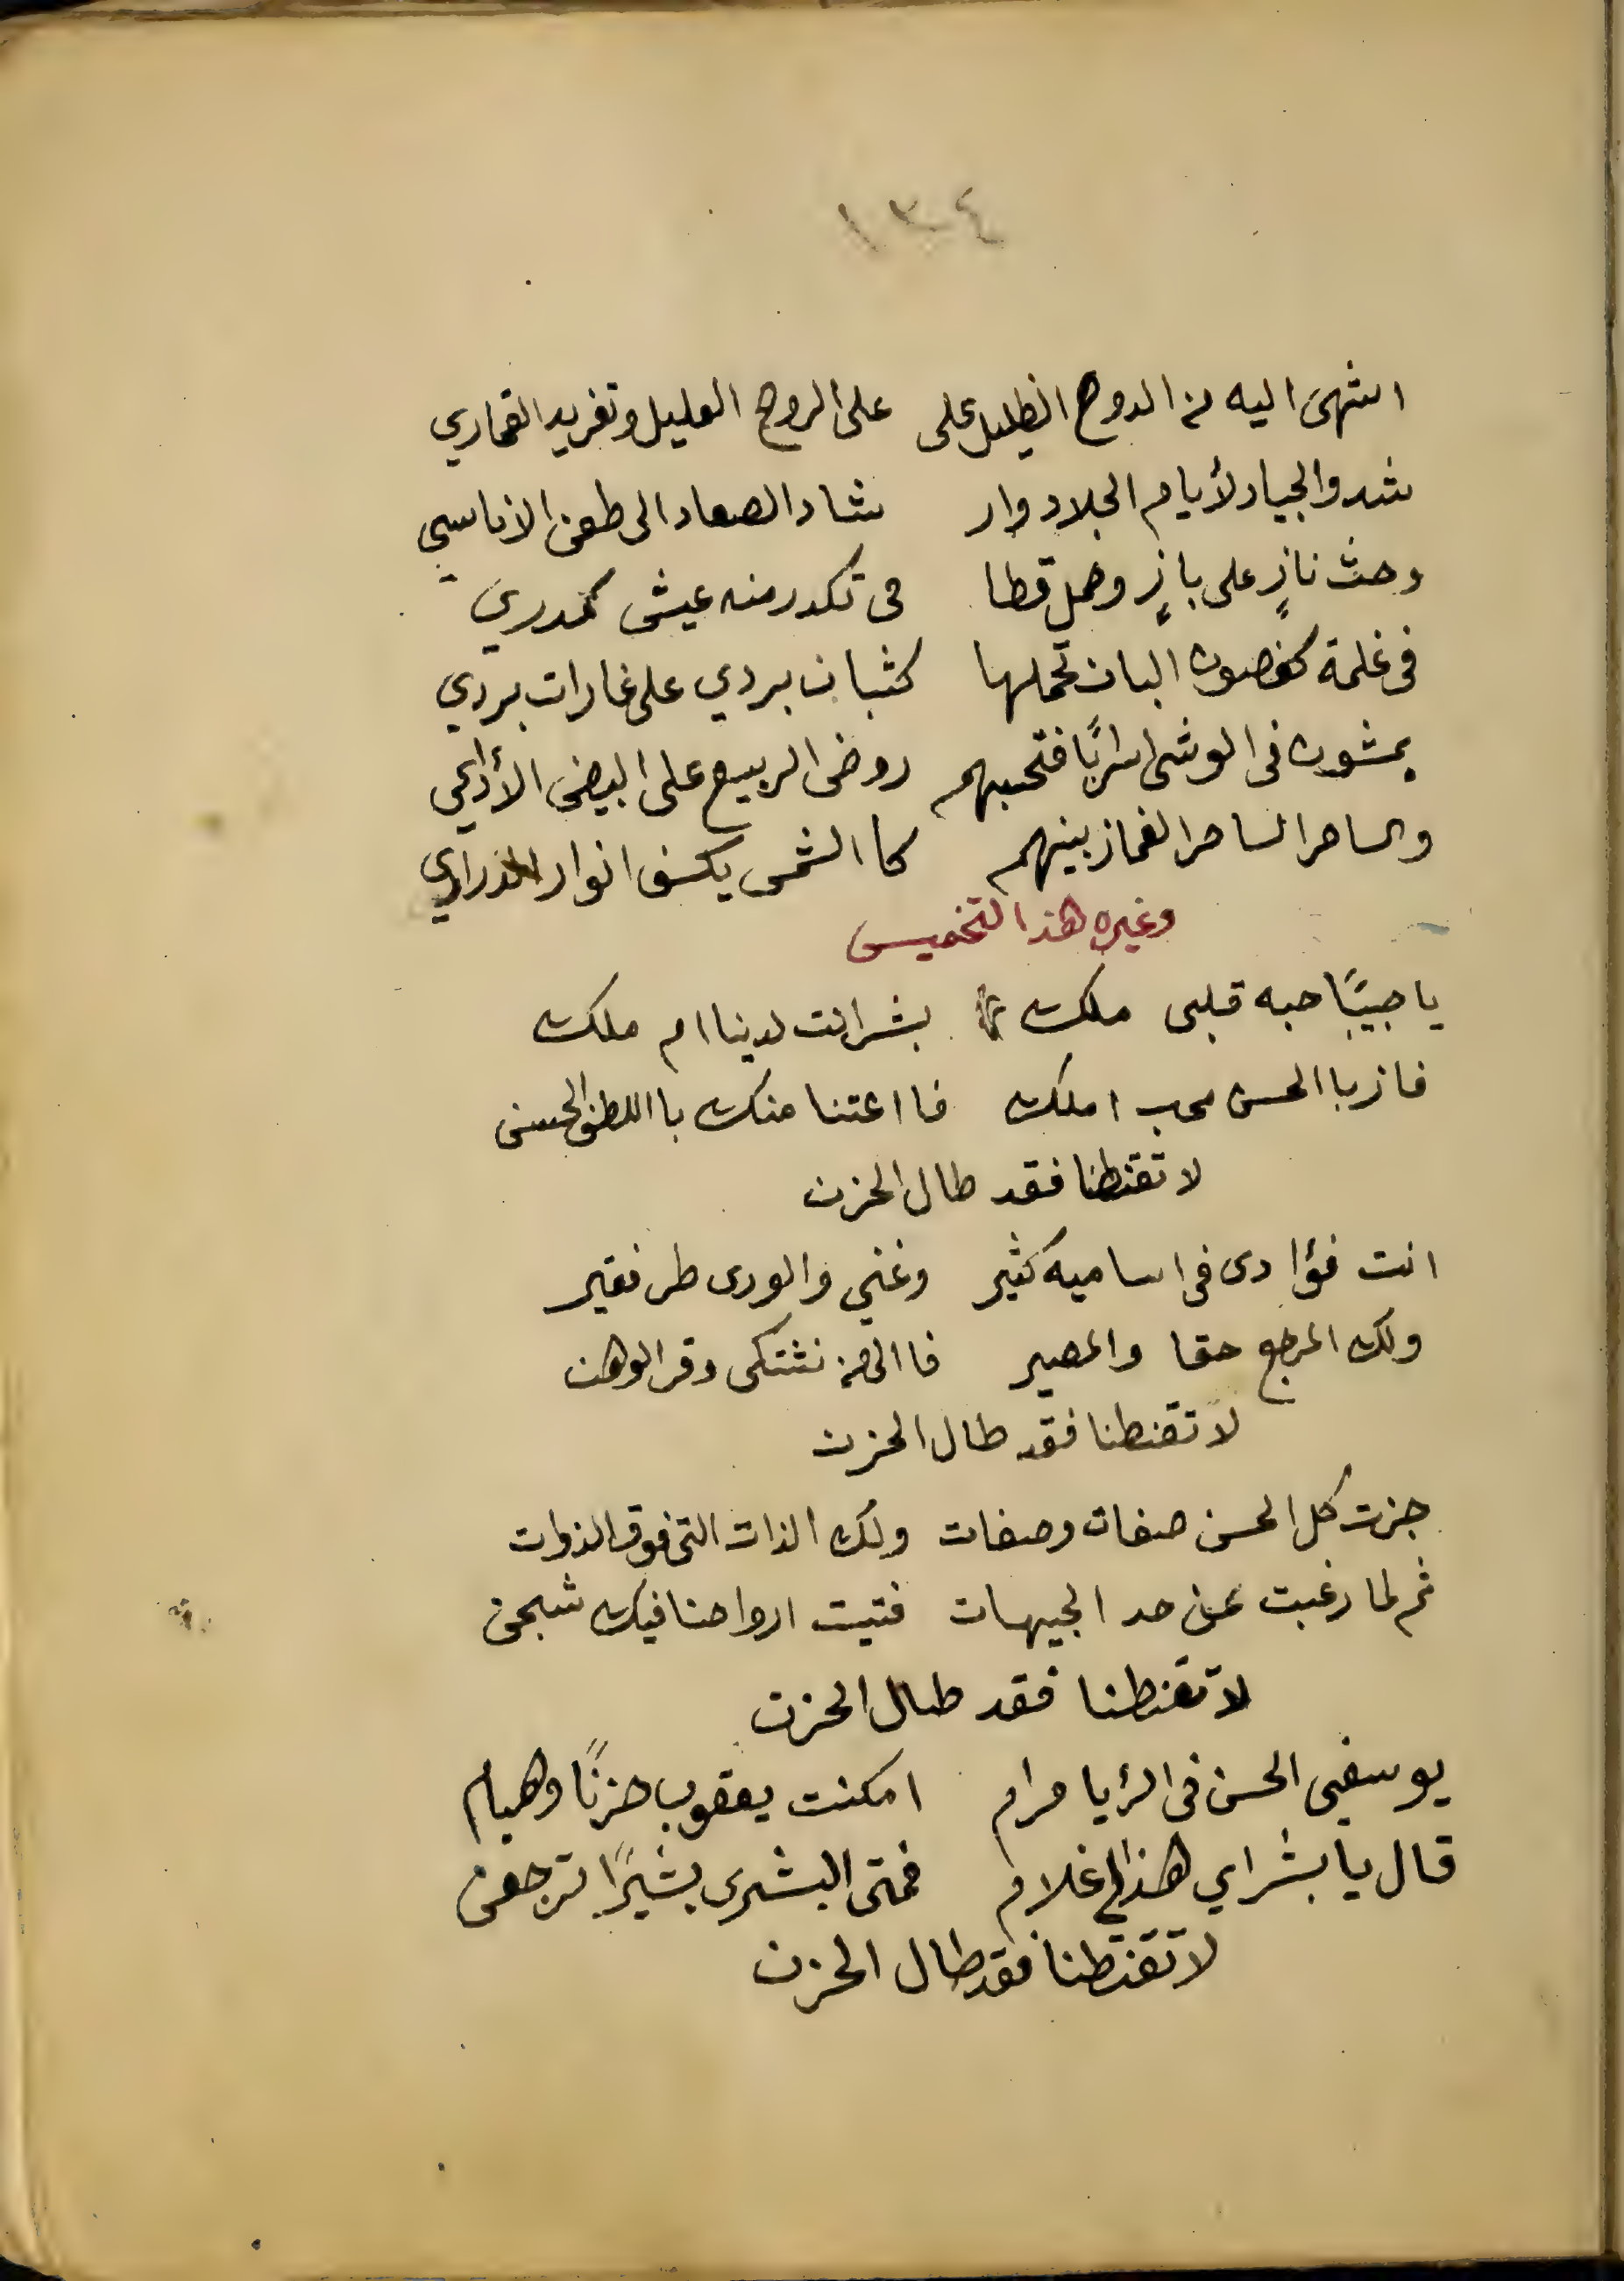 ١٣٤
اشهى اليه من الدوح الظليل على على الروح العليل وتغريد القماري
شدوالجياد لأيام الجلاد وار شاد الصعاد الى طعن الاناسي
وحث نازٍ على بازٍ وحمل قطا فى تكدر منه عيش كدري
فى غلمة كغصون البان تحملها كثبان بردي على غارات بردي
يمشون فى الوشى اسرابًا فتحسبهم روض الربيع على البيض الأداحي
والساحر الساحر الغماز بينهم كاالشمس يكسف انوار الدراري
وغيره هذا التخميس
يا حبيبًا حبه قلبى ملك بشر انت لدينا ام ملك
فاز باالحسن محب املك فااعتنا منك بااللطف الحسن
لا تقنطنا فقد طال الحزن
انت فؤادى فى اساميه كثير وغني والورى طر فقير
ولك المرجع حقا والمصير فاالى من نشتكى وقر الوهن
لا تقنطنا فقد طال الحزن
جزت كل الحسن صفات وصفات ولك الذات التى فوق الذوات
ثم لما رغبت عن حد الجيهات فتيت ارواحنا فيك شجن
لا تقنطنا فقد طال الحزن
يوسفي الحسن فى الرؤيا مرام امكنت يعقوب حزنًا وهيام
قال يا بشراي هذا لي غلام فمتى البشرى بشيرًا ترجعن
لا تقنطنا فقد طال الحزن